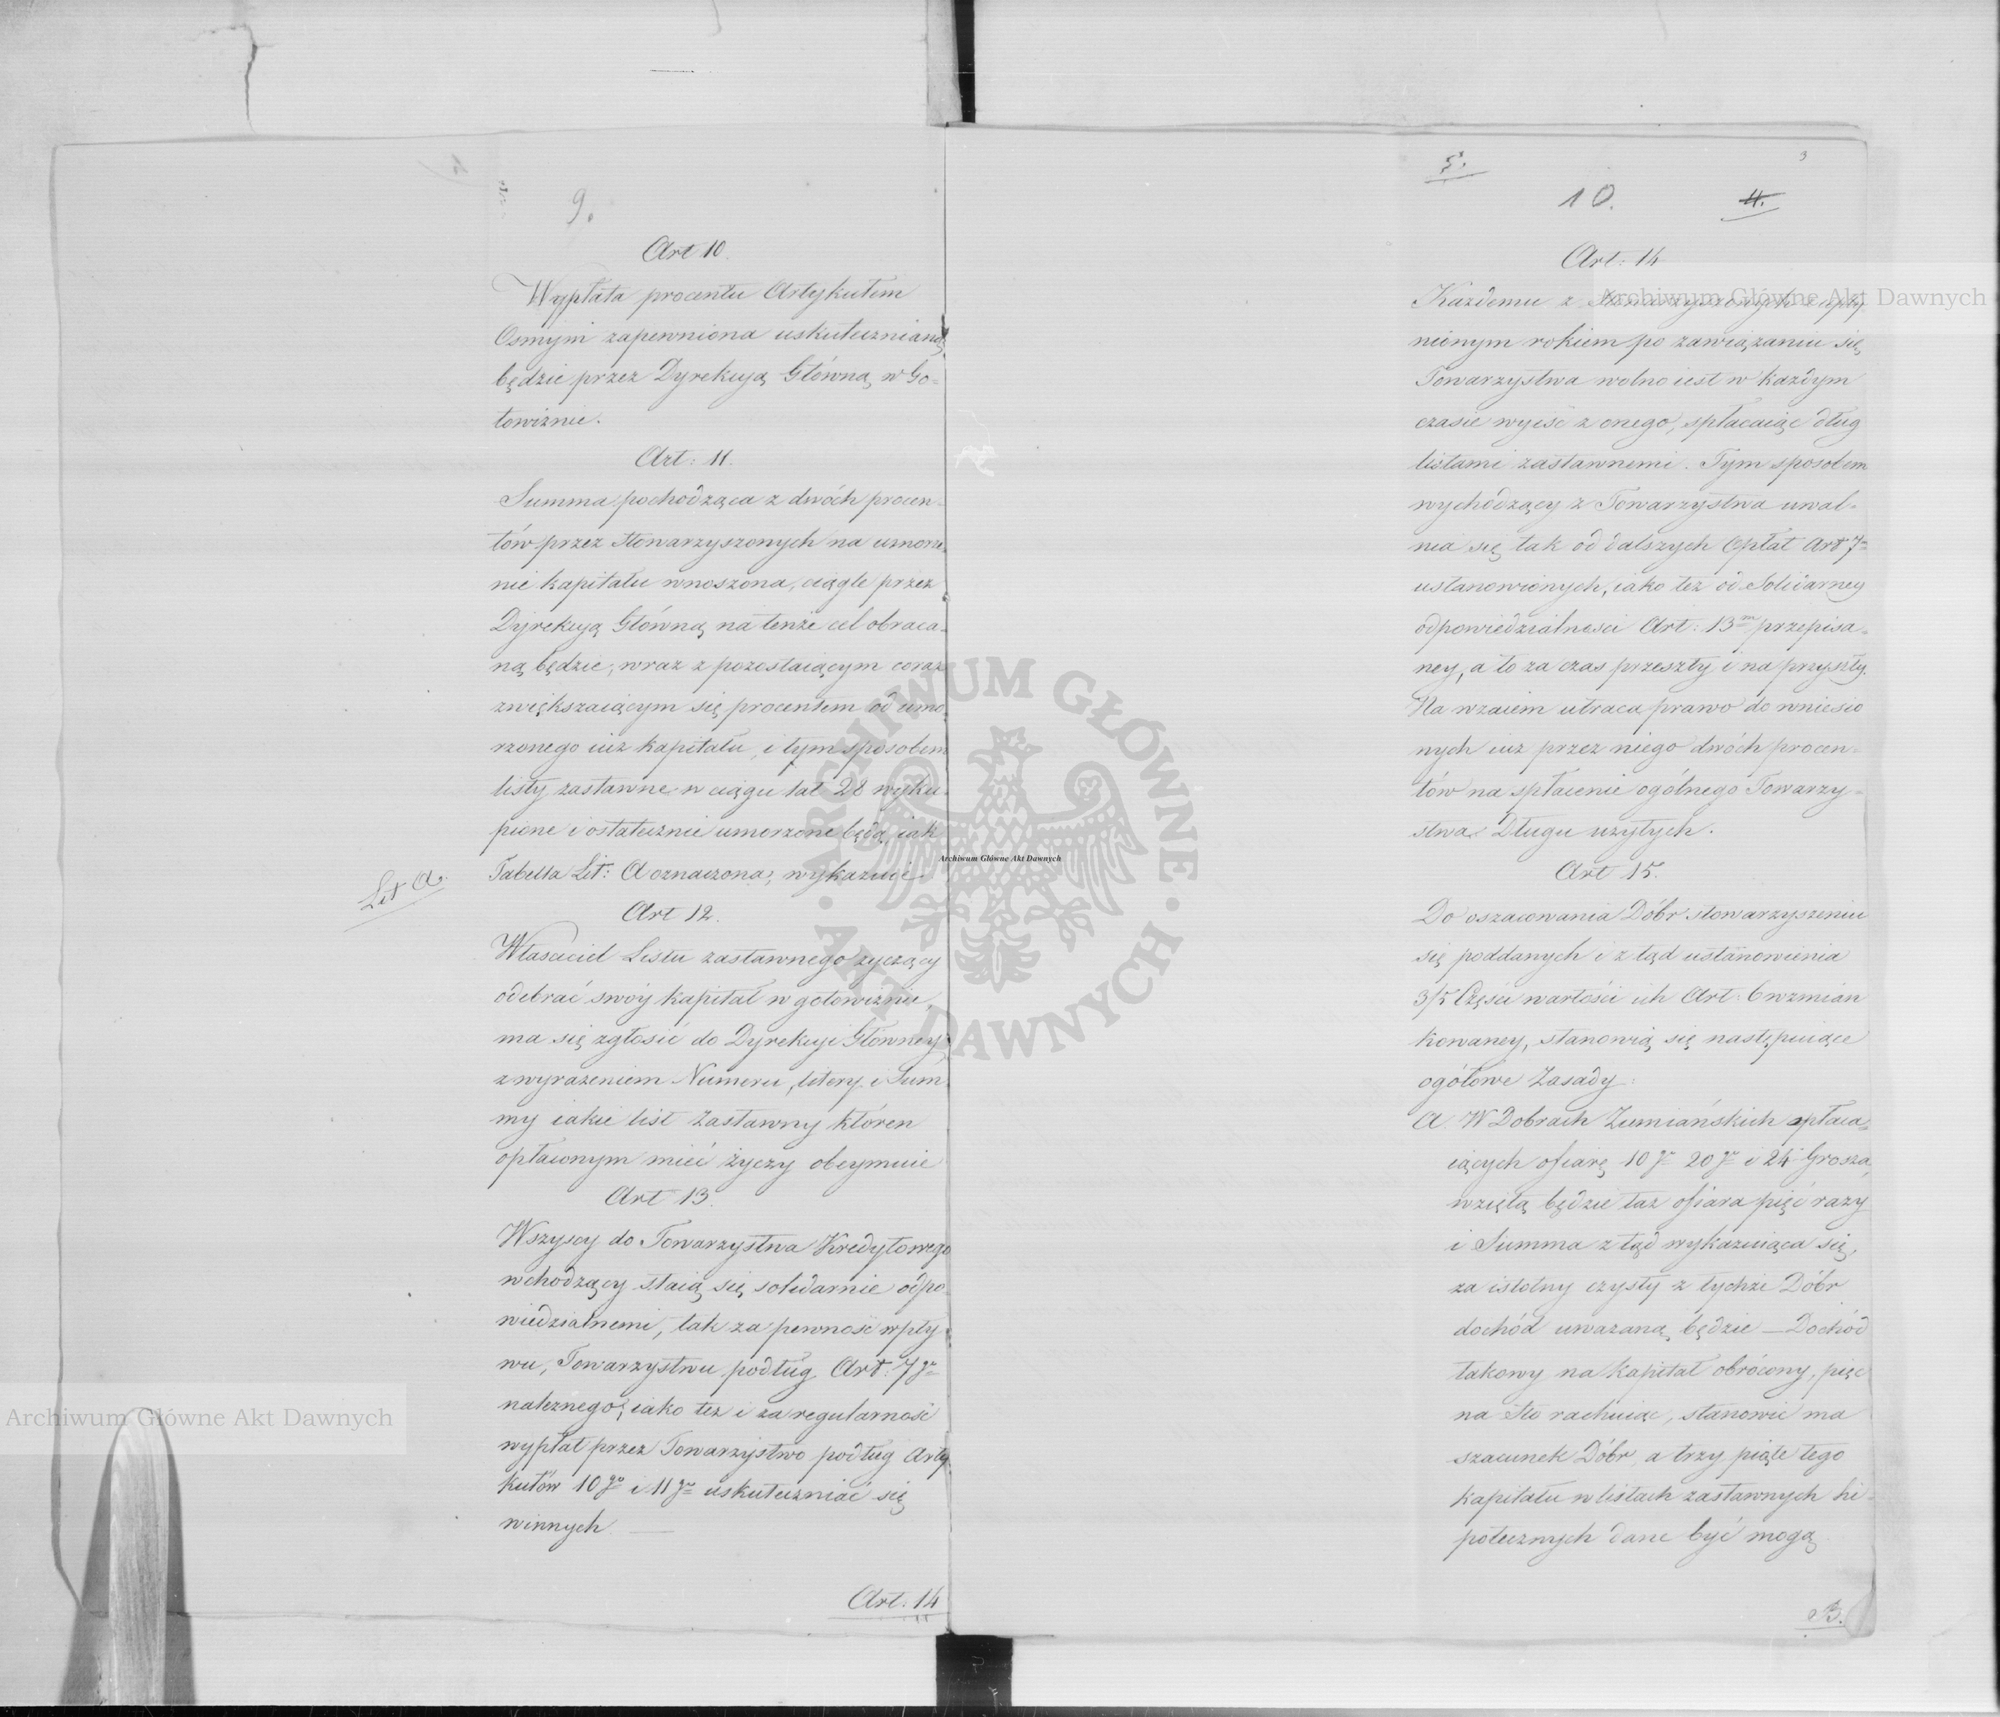 9.
Art 10.
Wypłata procentu Artykułem
Osmym zapewniona uskuteczniana
będzie przez Dyrekcyą Główną w Go-
towiźnie.
Art: 11.
Summa pochodząca z dwóch procen-
tów przez Stowarzyszonych na umorze-
nie kapitału wnoszona, ciągle przez
Dyrekcyą Główną na tenże cel obraca-
ną będzie, wraz z pozostaiącym coraz
zwiększaiącym się procentem od umo-
rzonego iuż kapitału, i tym sposobem
listy zastawne w ciągu lat 28 wyku-
pione i ostatecznie umorzone będą, iak
Tabella Lit: A oznaczona, wykazuie.
Lit A.
Art 12.
Własciciel Listu zastawnego życzący
odebrać swóy kapitał w gotowiźnie,
ma się zgłosić do Dyrekcyi Główney
z wyrażeniem Numeru, litery i Sum-
my iakie list zastawny któren
opłaconym mieć życzy obeymuie
Art 13.
Wszyscy do Towarzystwa Kredytowego
wchodzący staią się solidarnie odpo-
wiedzialnemi, tak za pewność wpły-
wu, Towarzystwu podług Art: 7go
należnego, iako też i za regularność
wypłat przez Towarzystwo podług Arty-
kułów 10go i 11go uskuteczniać się
winnych. —
Art. 14
5.
3
10.
4.
Art: 14
Każdemu z Stowarzyszonych z upły-
nionym rokiem po zawiązaniu się
Towarzystwa wolno iest w każdym
czasie wyiść z onego, spłacaiąc dług
listami zastawnemi. Tym sposobem
wychodzący z Towarzystwa uwal-
nia się tak od dalszych Opłat Art 7m
ustanowionych, iako też od Solidarney
odpowiedzialności Art: 13m przepisa-
ney, a to za czas przeszły i na przyszły.
Na wzaiem utraca prawo do wniesio
nych iuż przez niego dwóch procen-
tów na spłacenie ogólnego Towarzy-
stwa Długu użytych.
Art 15.
Do oszacowania Dóbr stowarzyszeniu
się poddanych i z tąd ustanowienia
3/5 Części wartości ich Art. 6 wzmian
kowaney, stanowią się następuiące
ogółowe Zasady:
A. W Dobrach Ziemiańskich opłaca-
iących ofiarę 10go 20go i 24 Grosza,
wziętą będzie taż ofiara pięć razy
i Summa z tąd wykazuiąca się,
za istotny czysty z tychże Dóbr
dochód uważaną będzie — Dochód
takowy na kapitał obrócony, pięć
na Sto rachuiąc, stanowić ma
szacunek Dóbr, a trzy piąte tego
kapitału w listach zastawnych hi-
potecznych dane być mogą
B.
Archiwum Główne Akt Dawnych
Archiwum Główne Akt Dawnych
Archiwum Główne Akt Dawnych
ARCHIWUM GŁÓWNE · AKT DAWNYCH ·